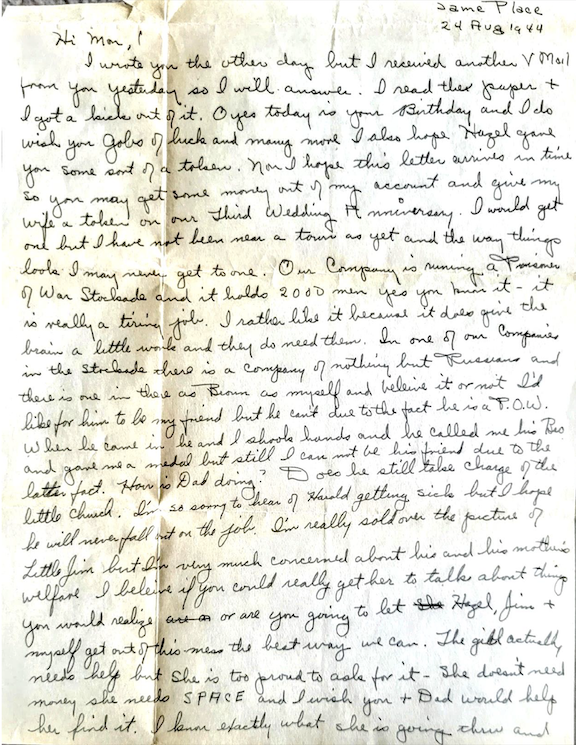 Same Place
24 Aug 1944
Hi Mom,
I wrote you the other day but I received another V Mail
from you yesterday so I will answer. I read the paper +
I got a kick out of it. O yes today is your Birthday and I do
wish you Gobs of luck and many more I also hope Hazel gave
you some sort of a token. Now I hope this letter arrives in time
so you may get some money out of my account and give my
wife a token on our Third Wedding Anniversary. I would get
one but I have not been near a town as yet and the way things
look I may never get to one. Our Company is running a Prisoner
of War Stockade and it holds 2000 men yes you know it - it
is really a tiring job. I rather like it because it does give the
brain a little work and they do need them. In one of our Companies
in the Stockade there is a company of nothing but Russians and
there is one in there as Brown as myself and beleive it or not I'd
like for him to be my friend but he can't due to the fact he is a P.O.W.
When he came in he and I shook hands and he called me his Bro
and gave me a medal but still I can not be his friend due to the
latter fact. How is Dad doing? Does he still take charge of the
little Church. I'm so sorry to hear of Harold getting sick but I hope
he will never fall out on the job. I'm really sold over the picture of
Little Jim but I'm very much concerned about his and his mother's
welfare I beleive if you could really get her to talk about things
you would realize or are you going to let Hazel, Jim +
myself get out of this mess the best way we can. The girl actually
needs help but She is too proud to ask for it - She doesn't need
money she needs SPACE and I wish you + Dad would help
her find it. I know exactly what she is going thru and